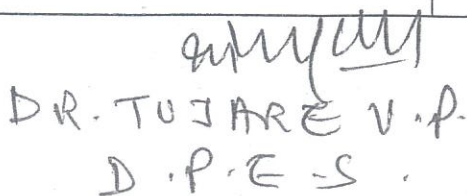 DR. TUJARE V.P.
D.P.E.S.